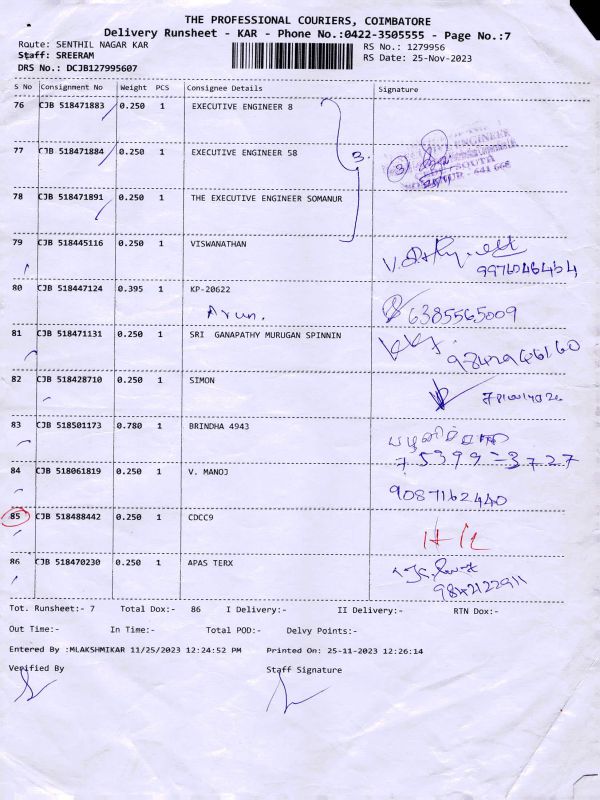 THE PROFESSIONAL COURIERS, COIMBATORE
Delivery Runsheet - KAR - Phone No.:0422-3505555 - Page No.:7
Route: SENTHIL NAGAR KAR
RS No.: 1279956
Staff: SREERAM
RS Date: 25-Nov-2023
DRS No.: DCJB127995607
S No Consignment No Weight PCS Consignee Details Signature
76 CJB 518471883 0.250 1 EXECUTIVE ENGINEER 8
77 CJB 518471884 0.250 1 EXECUTIVE ENGINEER 58
3.
3
ENGINEER
SOUTH
641 668
78 CJB 518471891 0.250 1 THE EXECUTIVE ENGINEER SOMANUR
79 CJB 518445116 0.250 1 VISWANATHAN
9976046464
80 CJB 518447124 0.395 1 KP-20622
Arun.
6385565009
81 CJB 518471131 0.250 1 SRI GANAPATHY MURUGAN SPINNIN
9842946160
82 CJB 518428710 0.250 1 SIMON
83 CJB 518501173 0.780 1 BRINDHA 4943
75399-3727
84 CJB 518061819 0.250 1 V. MANOJ
9087162440
85 CJB 518488442 0.250 1 CDCC9
86 CJB 518470230 0.250 1 APAS TERX
9842122911
Tot. Runsheet:- 7 Total Dox:- 86 I Delivery:- II Delivery:- RTN Dox:-
Out Time:- In Time:- Total POD:- Delvy Points:-
Entered By :MLAKSHMIKAR 11/25/2023 12:24:52 PM Printed On: 25-11-2023 12:26:14
Verified By Staff Signature